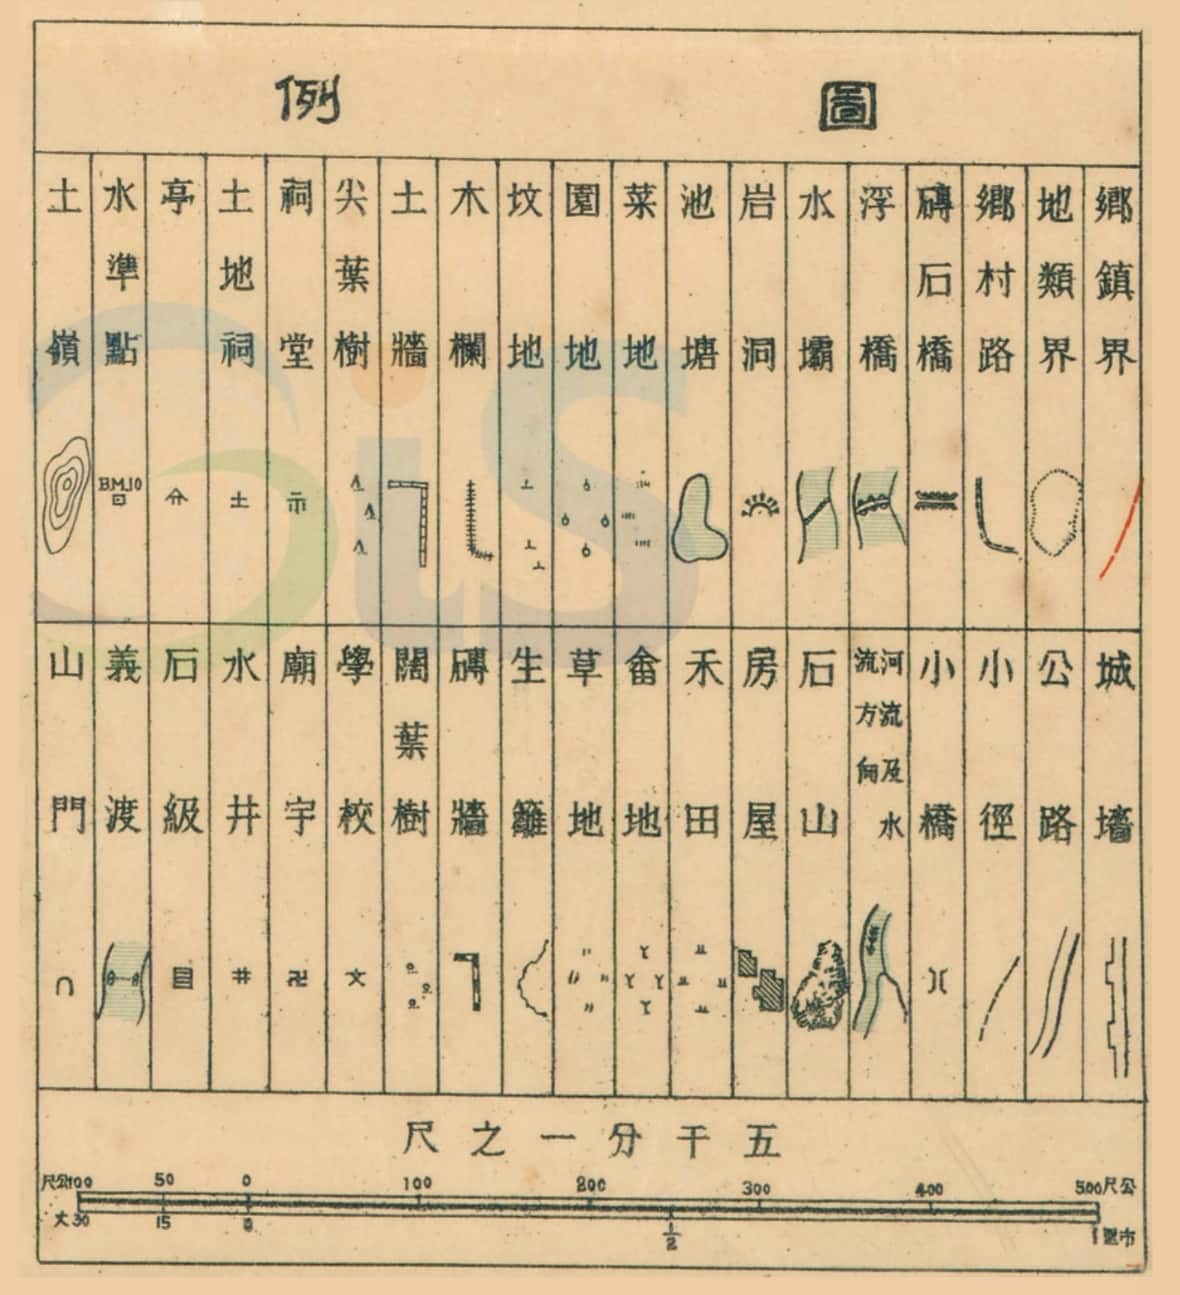 圖例
鄉鎮界
地類界
鄉村路
磚石橋
浮橋
水壩
岩洞
池塘
菜地
園地
坟地
木欄
土牆
尖葉樹
祠堂
土地祠
亭
水準點
B.M.10
土嶺
城墻
公路
小徑
小橋
河流及水流方向
石山
房屋
禾田
畬地
草地
生籬
磚牆
闊葉樹
學校
廟宇
水井
石級
義渡
山門
五千分一之尺
尺公100 50 0 100 200 300 400 500尺公
丈30 15 0 1/2 1里市